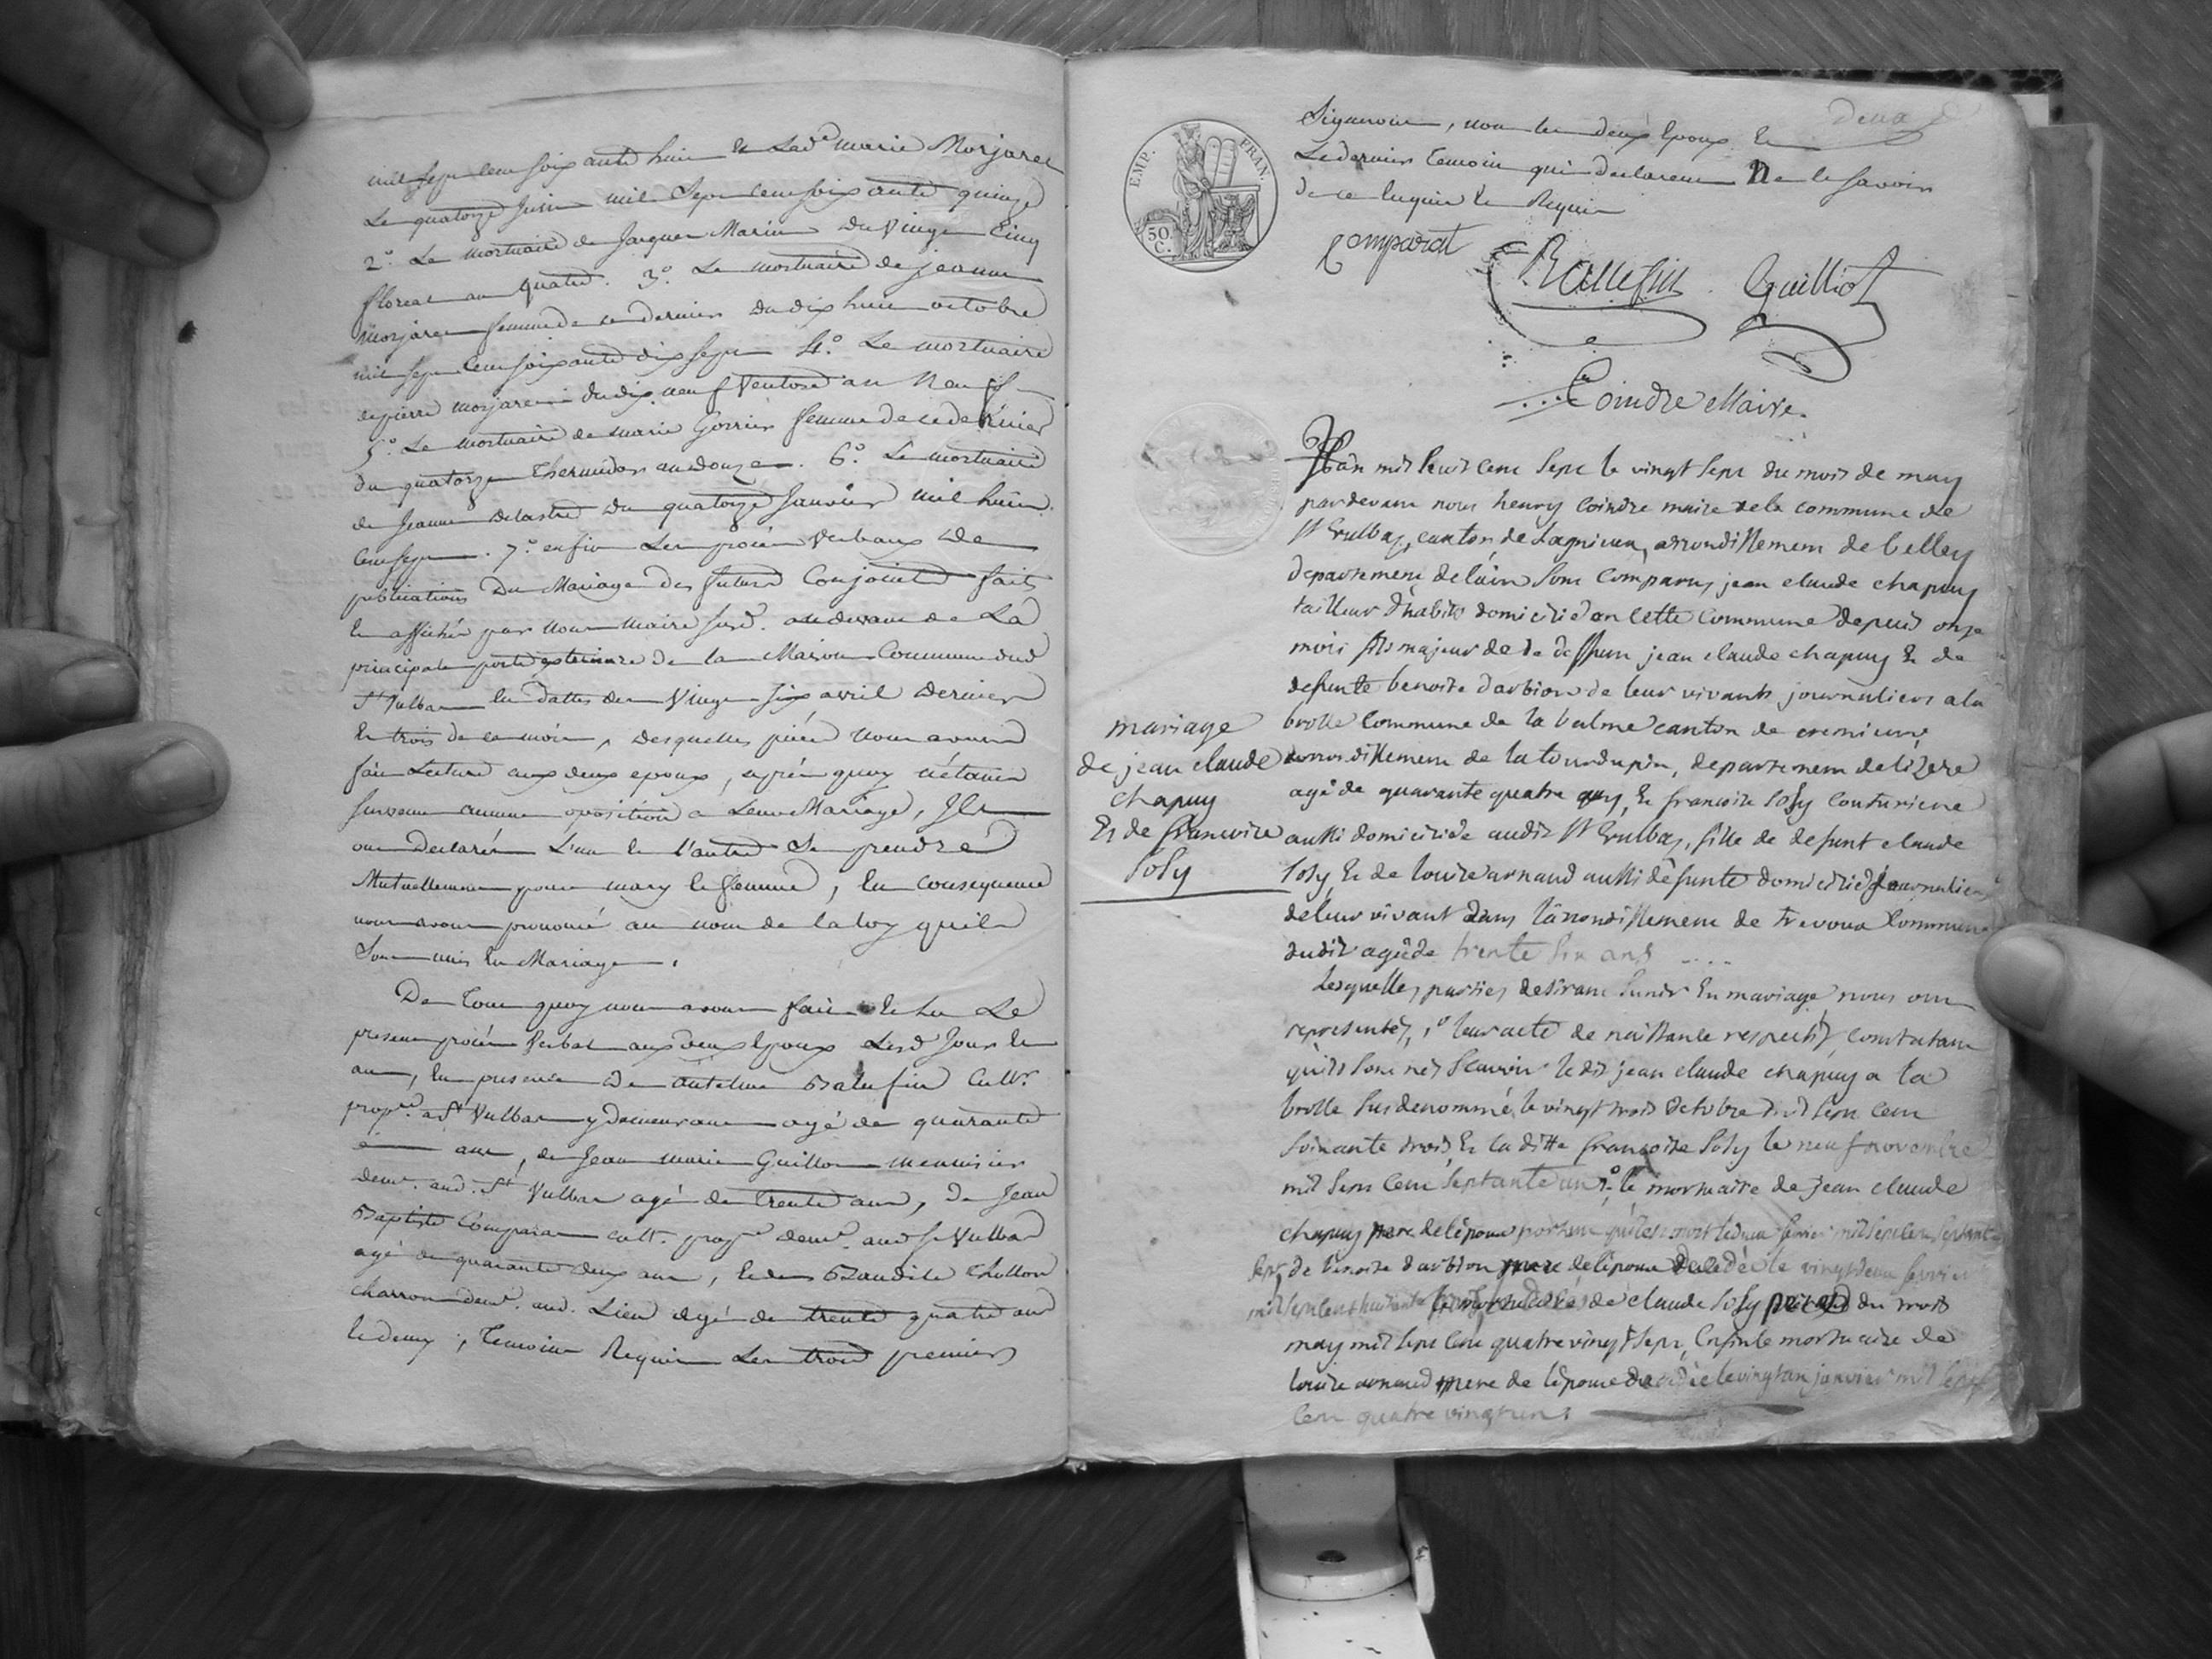 mil sept cent soixante huit & Lad.e marie Morjaret
Le quatorze Juin mil Sept cent soixante quinze
2.° Le mortuaire de Jacques Marin Du Vingt Cinq
floreal an quatre. 3.° Le mortuaire de jeanne
morjaret femme de ce dernier du dix huit octobre
mil sept cent soixante dix sept 4.° Le mortuaire
de pierre morjaret du dix neuf Ventose an Neuf
5.° Le mortuaire de marie Gorrier femme de ce dernier
du quatorze thermidor an douze. 6.° Le mortuaire
de Jeanne Delastre du quatorze Janvier mil huit
Cent sept. 7.° enfin Les procès Verbaux de
publications Du Mariage des futurs Conjoints faits
& affichés par nous maire susd. au devant de La
principale porte exterieure de la Maison Commune dud
St Vulbas en dattes des Vingt six avril Dernier
& trois de ce mois, desquelles pièces nous avons
fait Lecture aux deux epoux, après quoy n'étant
survenu aucune oposition a Leur Mariage, Ils
ont Declarés L'un & l'autre se prendre
Mutuellement pour mary & femme, en consequence
nous avons prononcé au nom de la loy qu'ils
Sont unis en Mariage.
De Tout quoy nous avons fait & Lu Le
present procès Verbal aux deux Epoux Lesd Jour &
an, en presence de Antelme Ballefin Cult.r
prop.re a St Vulbas y demeurant agé de quarante
ans, de Jean marie Guillot menuisier
dem.t aud. St Vulbas agé de trente ans, de Jean
Baptiste Comparat cult. prop.re dem.t aud St Vulbas
agé de quarante deux ans, & de Baudile Chollon
charron dem.t aud. Lieu agé de trente quatre ans
& demy, Temoins Requis Les trois premiers
deux
EMP. FRAN.
50 C.
Signeront, non les deux Epoux &
Le dernier Temoin qui declarent Ne le savoir
de ce enquis & Requis
Comparat
Ballefin Guilliot
Coindre Maire.
L'an mil huit cent sept le vingt sept du mois de may
pardevant nous henry Coindre maire de la commune de
St Vulbas, canton de Lagnieu, arrondissement de belley
departement de l'ain sont comparus jean claude chapuy
tailleur d'habits domicilié en cette Commune depuis onze
mois fils majeur de de deffunt jean claude chapuy & de
defunte benoite darbion de leur vivants journaliers a la
brosse Commune de la balme canton de cremieux
arrondissement de la tour du pin, departement de lizere
agé de quarante quatre ans, & francoise Soly Couturiere
aussi domiciliée audit St Vulbas, fille de defunt claude
Soly & de louise arnaud aussi défunte domiciliés journaliers
de leur vivant dans l'arrondissement de trevoux Commune
dudit agée de trente six ans ....
mariage
de jean claude
chapuy
& de francoise
Soly
Lesquelles parties desirant sunir En mariage nous ont
representés, 1.° leur acte de naissance respectif, constatant
quils sont nés Scavoir ledit jean claude chapuy a la
brosse susdenommé, le vingt trois octobre mil sept cent
soixante trois, & la ditte francoise Soly le neuf novembre
mil sept Cent septante un 2.° le mortuaire de jean claude
chapuy pere de lépoux portant quil est mort le deux fevrier mil sept cent septante
sept, de benoite darbion mere de lépoux decedée le vingt deux fevrier
mil sept cent huitante de claude Soly du trois
may mil sept cent quatre vingt sept, Enfin le mortuaire de
louise arnaud mere de lépouse decedée le vingt un janvier mil sept
Cent quatre vingt un